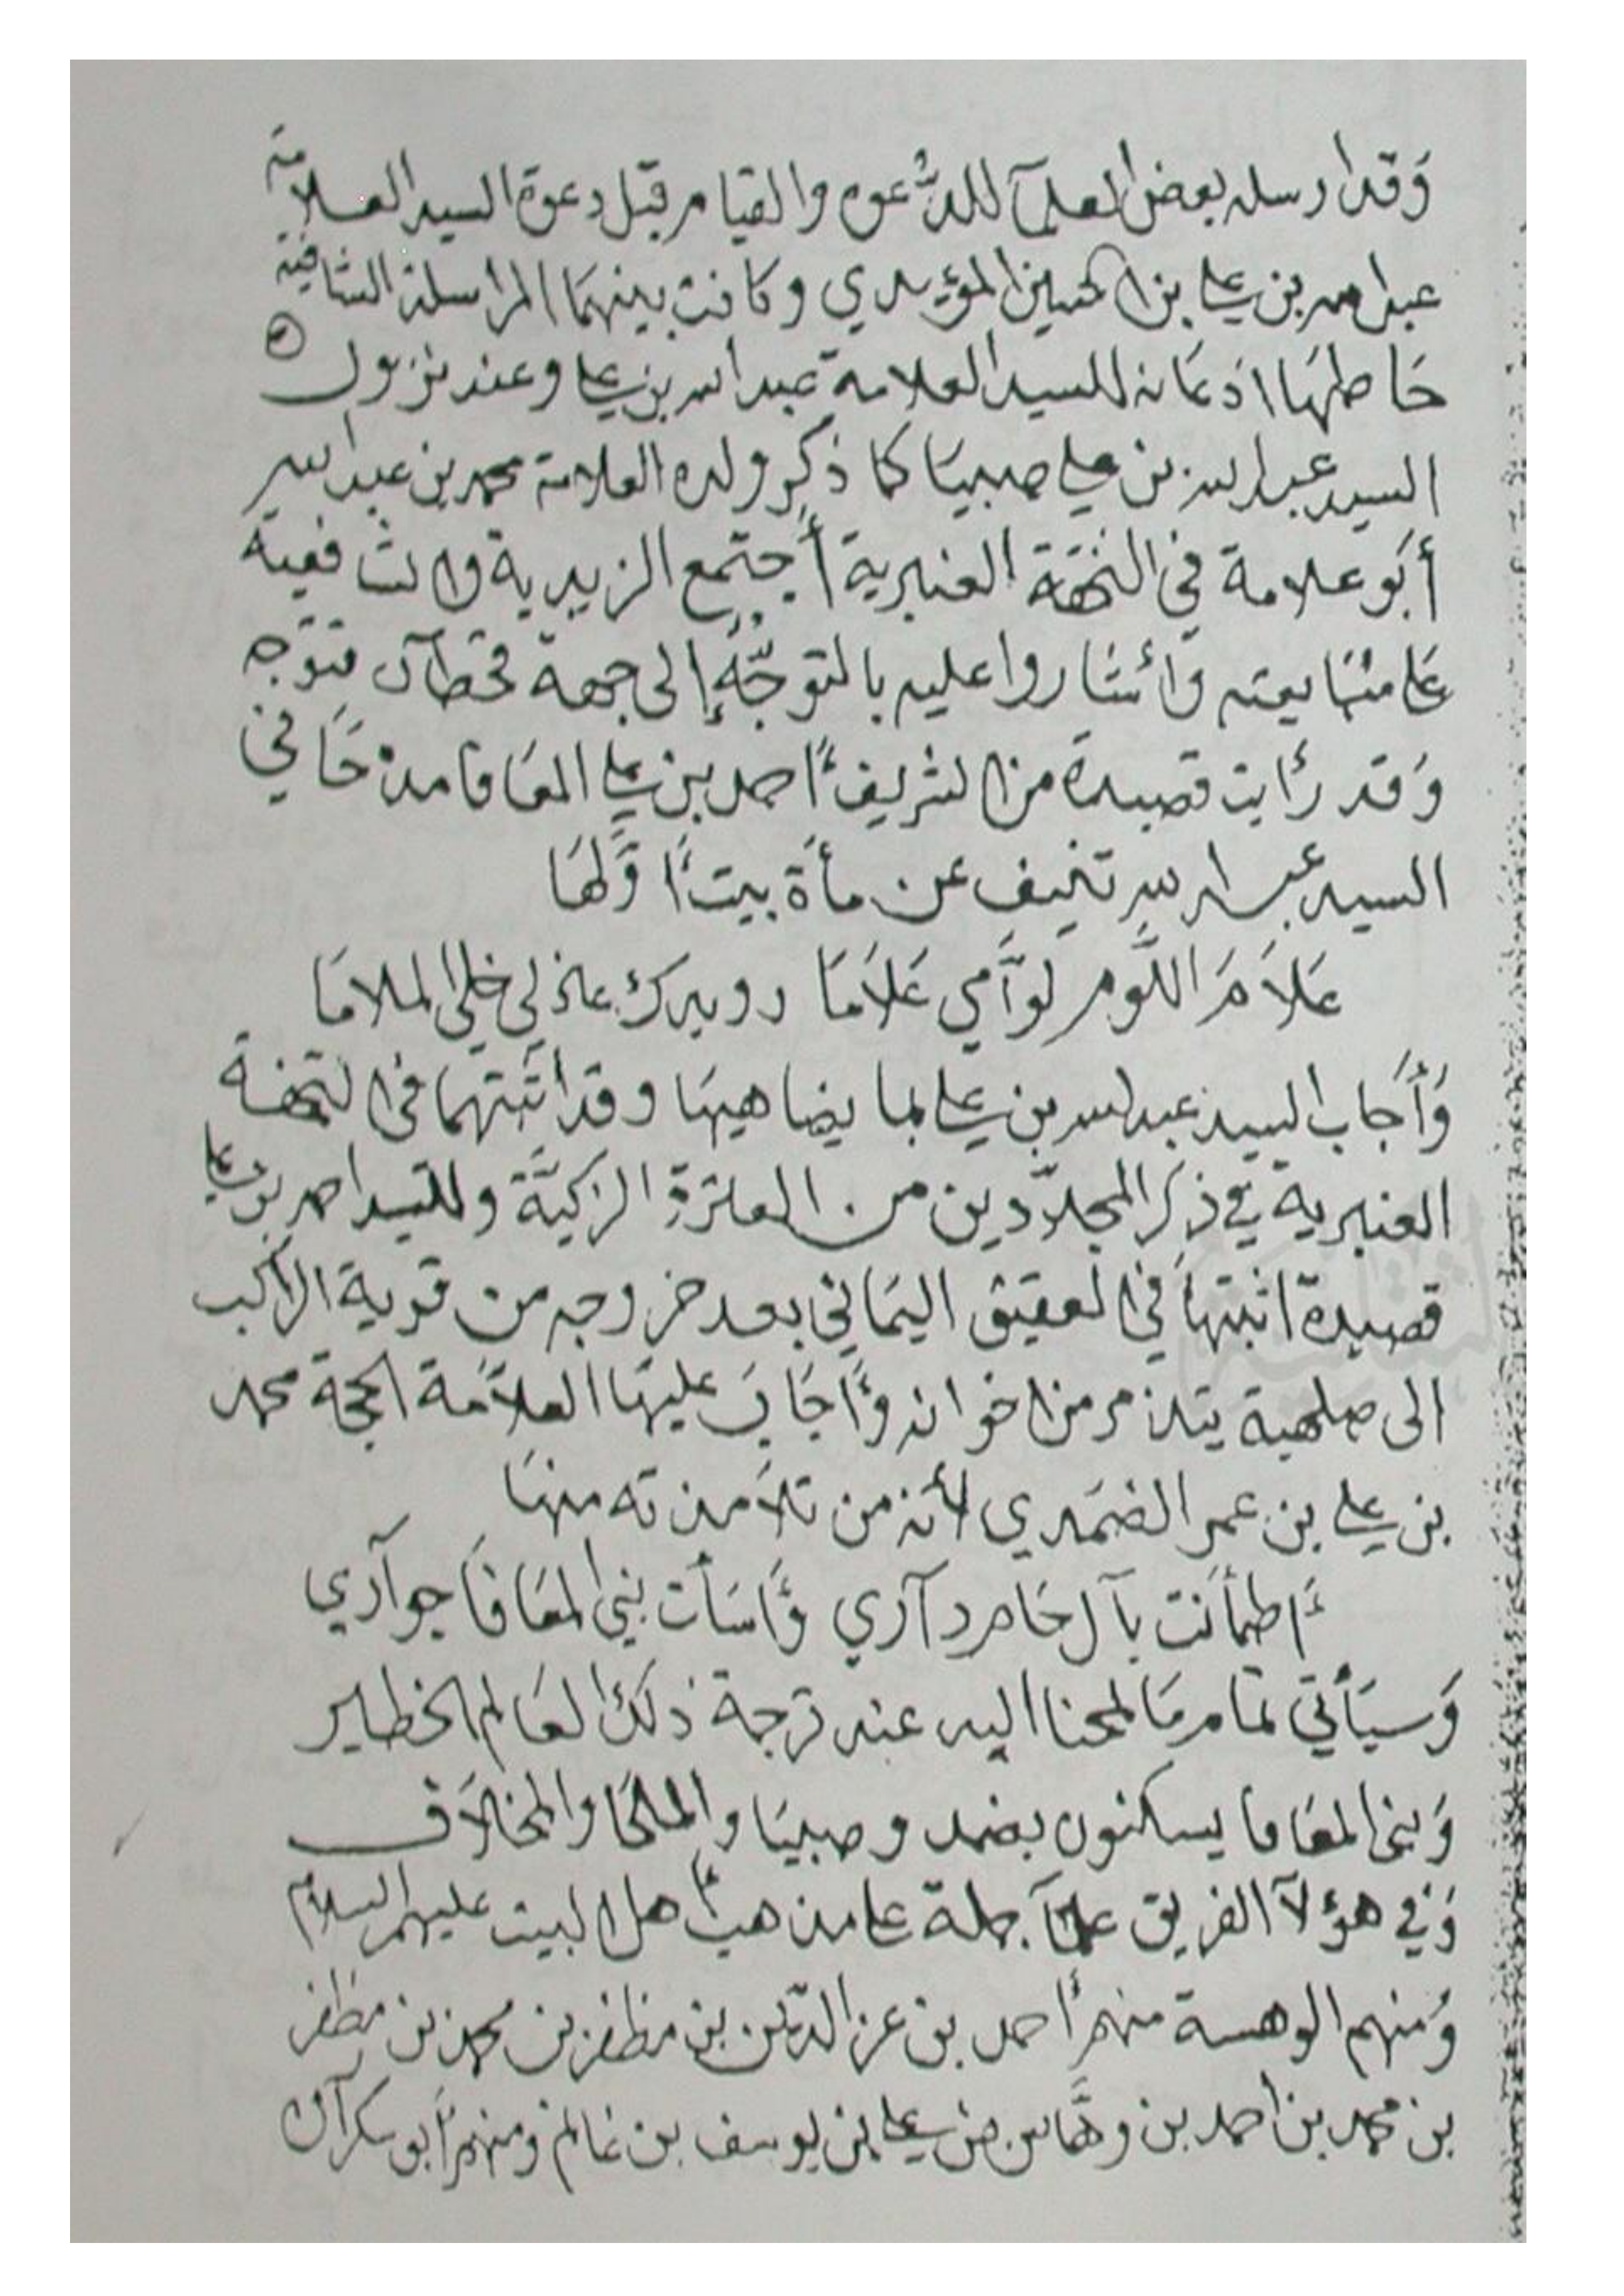 وَقد ارسله بعض العلمآ للدُّعوه والقيام قبل دعوة السيد العلامة
عبدالله بن علي بن الحسين المؤيدي وكانت بينهما المراسلة الشافيه
حَاطهَا اذعانه للسيد العلامة عبدالله بن علي وعند نزول
السيد عبدالله بن علي صبيَا كما ذكر ولده العلامة محمد بن عبدالله
أبَو علامة في التحفة العنبرية أجتمع الزيدية والشافعية
عَلى متَابعته وَأشَاروا عليه بالتوجُّه إلى جهة قحطان فتوَجه
وَقد رأيت قصيدة من الشريف أحمد بن علي المعَافا مدحَا في
السيد عبدالله تنيف عن مأة بيت أوَّلهَا
عَلاَمَ اللَّوم لوَّآمي عَلاَمَا رويدك عاذلي خلي الملامَا
وَأجَاب السيد عبدالله بن علي بما يضاهيهَا وقد اثبتهما في التحفة
العنبرية في ذكر المجدّدين من العترة الزكيَّة وللسيد احمد بن علي
قصيدة اثبتهَا في العقيق اليمَاني بعد خروجه من قرية الراكب
الى صلهبة يتذمر من اخوانه وَأجَابَ عليهَا العلاَّمَة الحجة محمد
بن علي بن عمر الضمَدي لأنه من تلاَمذته منهَا
أطمأنت بآل حَام دآري وَأسَأت بني المعَافَا جوآري
وَسيَأتي تمام مَا لمحنا اليه عند ترجمة ذلك العَالم الخطير
وَبني المعَافا يسكنون بضمد وصبيَا والملحَا والمخلاَف
وَفي هؤلآ الفريق علمآ جملة على مذهب أهل البيت عليهم السلام
وَمنهم الوهسة منهم أحمد بن عز الدّين بن مظفر بن محمد بن مظفر
بن محمد بن احمد بن وهَّاس بن علي بن يوسف بن غانم ومنهم أبو سكرآن